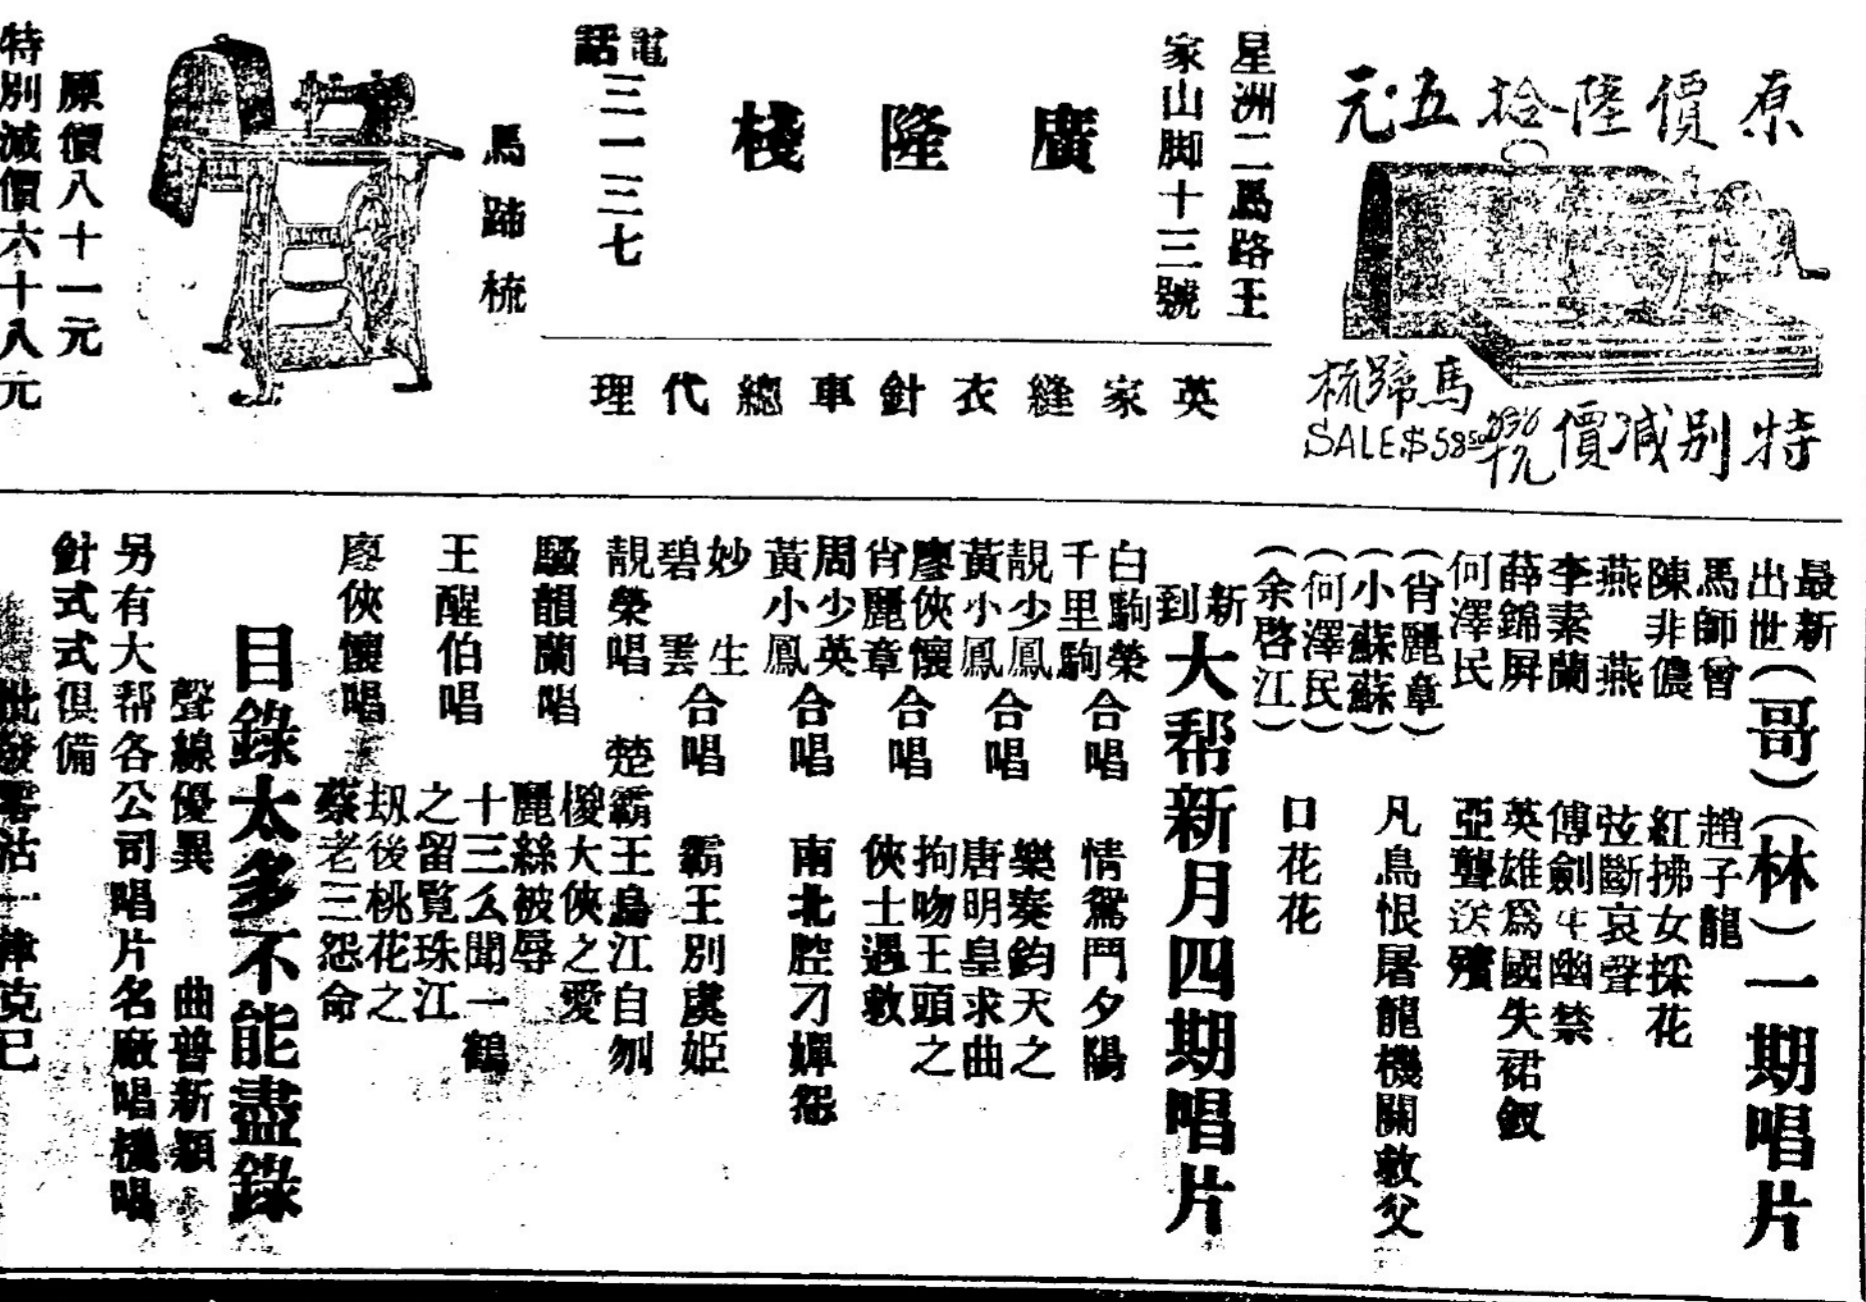 原價隆拾五元
馬蹄梳
SALE.$58.50
特別減價
星洲二馬路王
家山脚十三號
廣隆棧
電話三一三七
英家縫衣針車總代理
馬蹄梳
原價八十一元
特別減價六十八元
最新出世(哥)(林)一期唱片
馬師曾 趙子龍
陳非儂 紅拂女採花
燕燕 弦斷哀聲
李素蘭 傅劍生幽禁
薛錦屏 英雄爲國失裙釵
何澤民 亞聾送殯
(肖麗章)
(小蘇蘇) 凡鳥恨屠龍機關救父
(何澤民)
(余啓江) 口花花
新到大帮新月四期唱片
白駒榮 千里駒 合唱 情鴛鬥夕陽
靚少鳳 黃小鳳 合唱 樂奏鈞天之唐明皇求曲
廖俠懷 肖麗章 合唱 拘吻王頭之俠士遇救
周少英 黃小鳳 合唱 南北腔刁嬋怨
妙生 碧雲 合唱 霸王別虞姬
靚榮唱 楚霸王烏江自刎
騷韻蘭唱 傻大俠之愛麗絲被辱
王醒伯唱 十三么聞一鶴之留覽珠江
廖俠懷唱 刧後桃花之蔡老三怨命
目錄太多不能盡錄
聲線優異 曲普新穎
另有大帮各公司唱片名廠唱機唱
針式式俱備
批發零沽一律克已